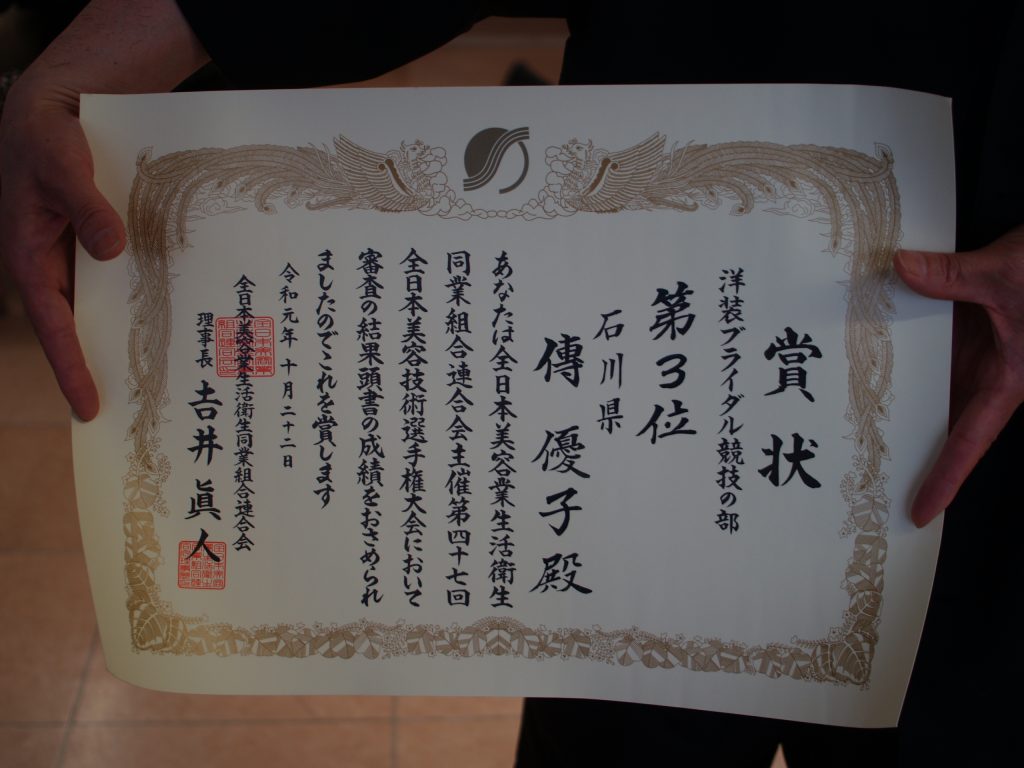 賞状
洋装ブライダル競技の部
第3位
石川県
傳優子殿
あなたは全日本美容業生活衛生
同業組合連合会主催第四十七回
全日本美容技術選手権大会において
審査の結果頭書の成績をおさめられ
ましたのでこれを賞します
令和元年十月二十二日
全日本美容業生活衛生同業組合連合会
理事長 吉井眞人